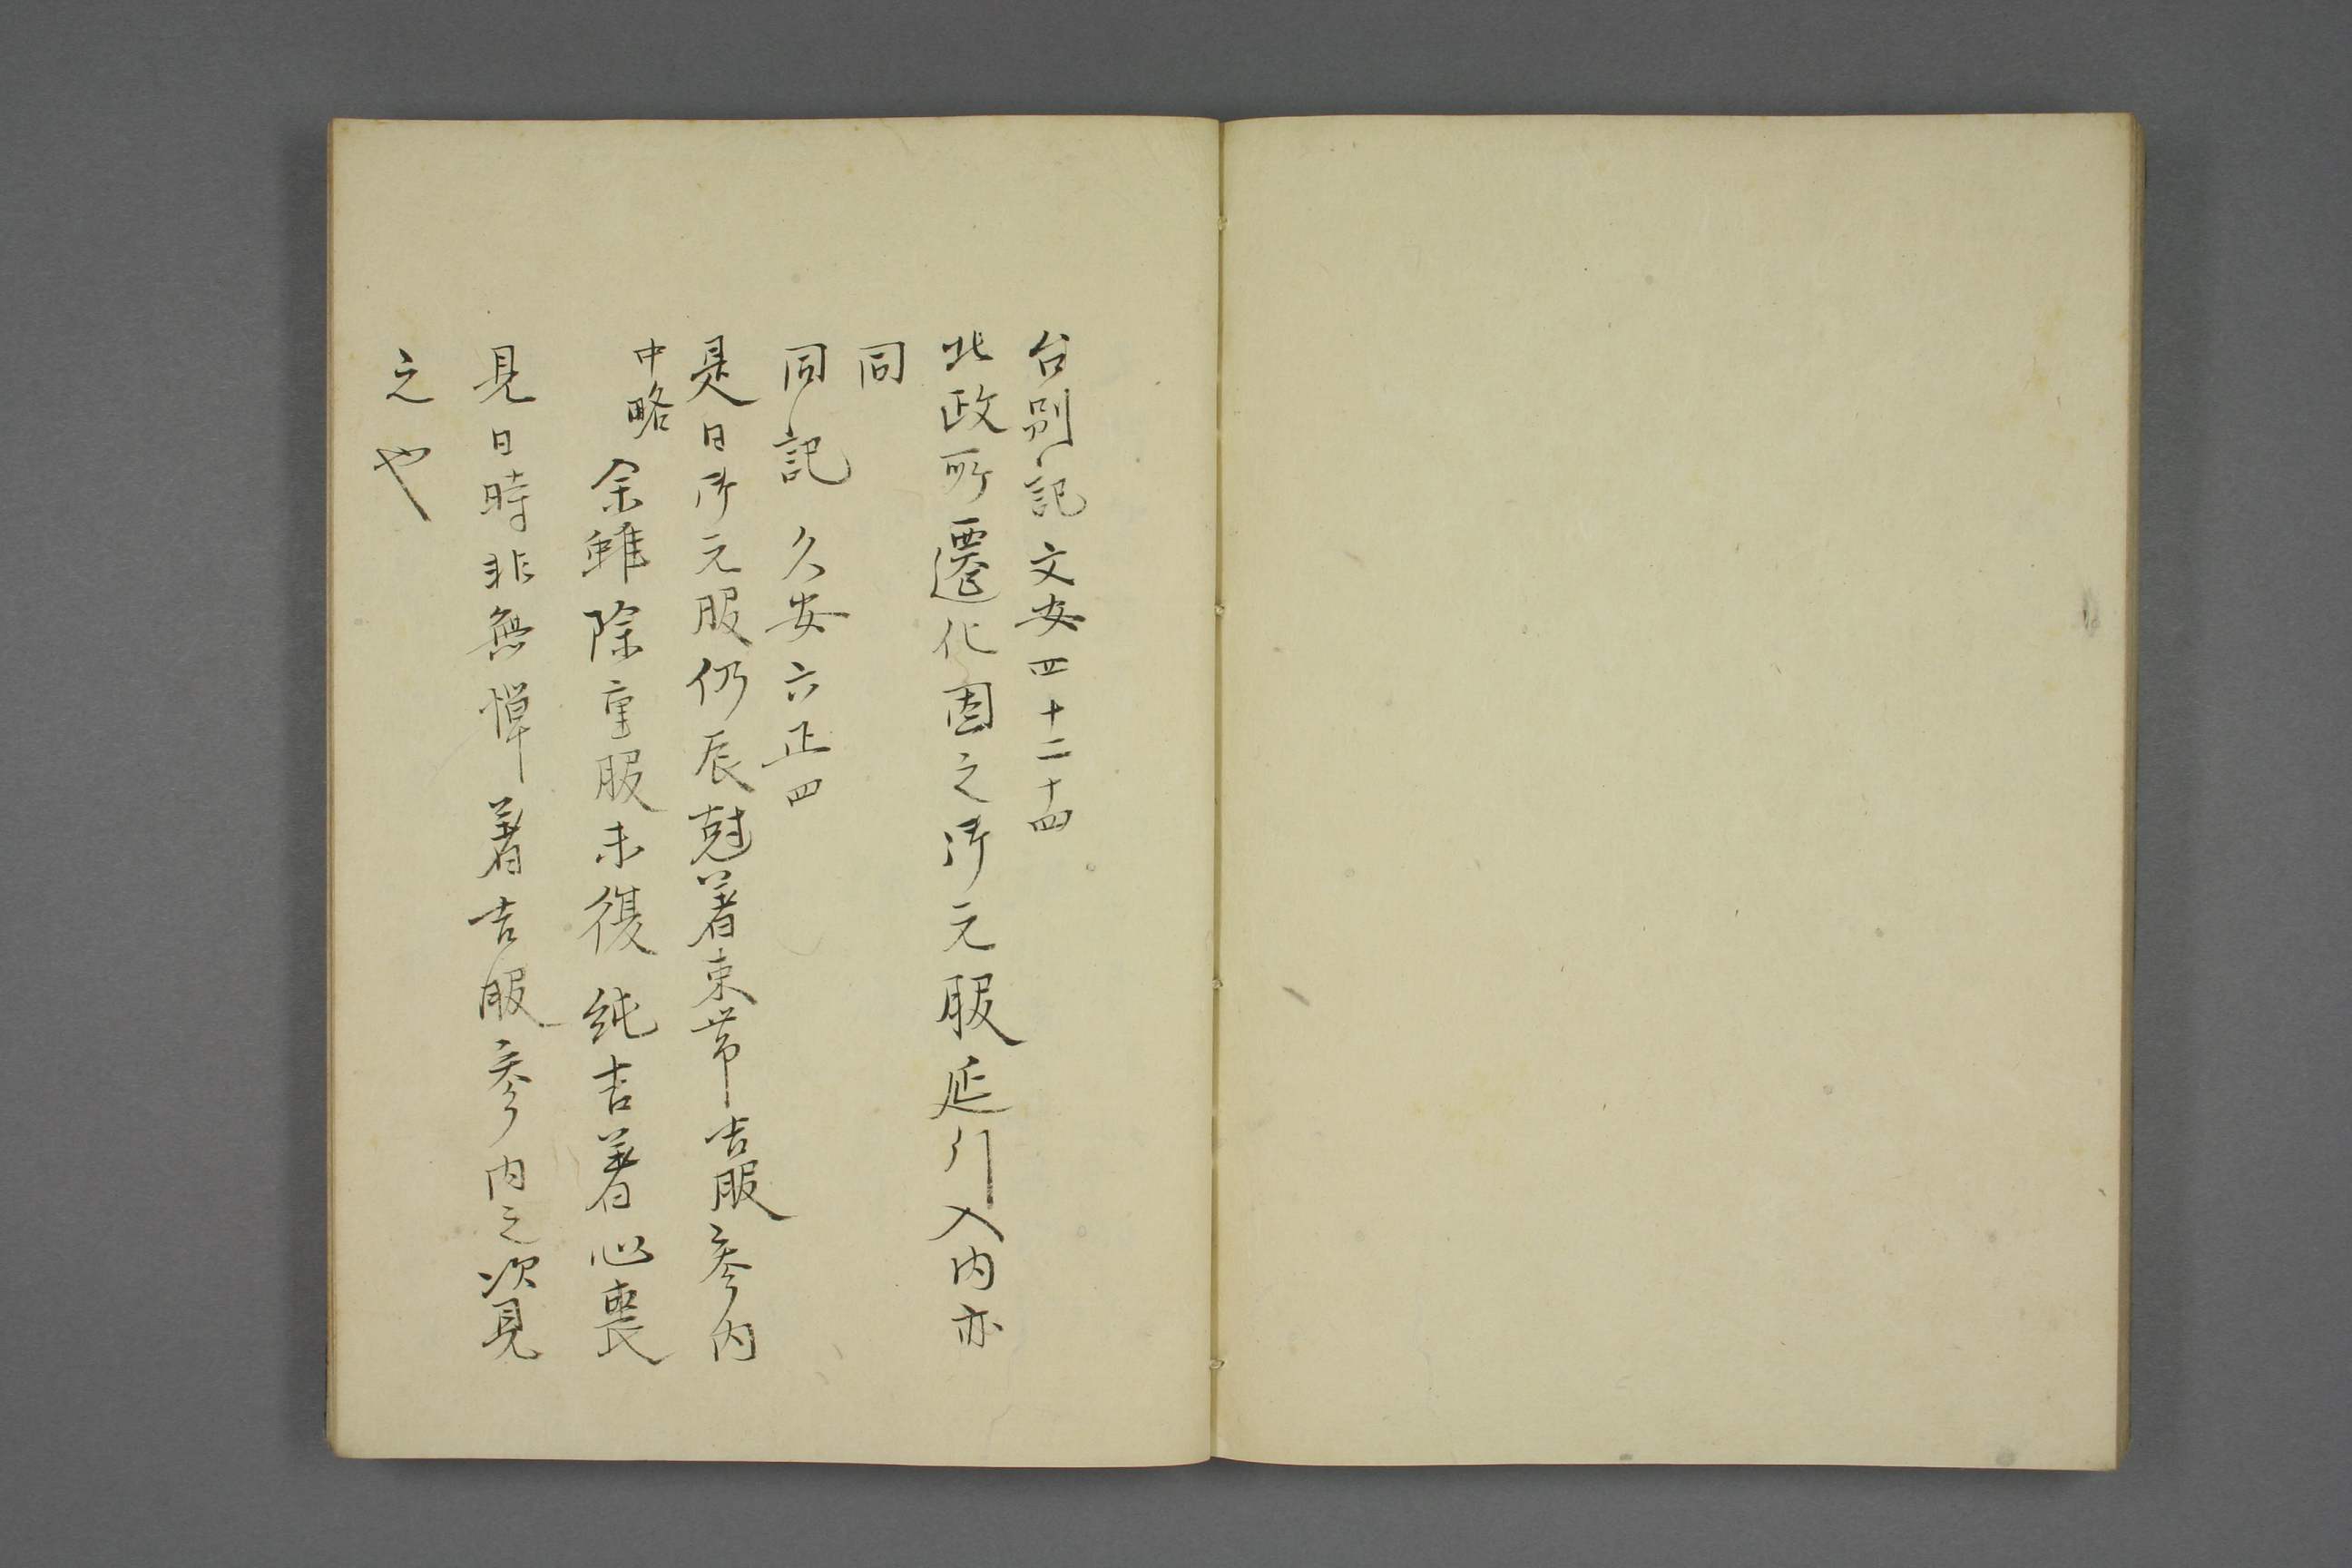 台別記文安四十二十四
北政所遷化因之御元服延引入内亦
同
同記久安六正四
是日御元服仍辰尅著束帯吉服参内
中略余雖除重服未復純吉著心喪
見日時非無憚著吉服参内之次見
之也